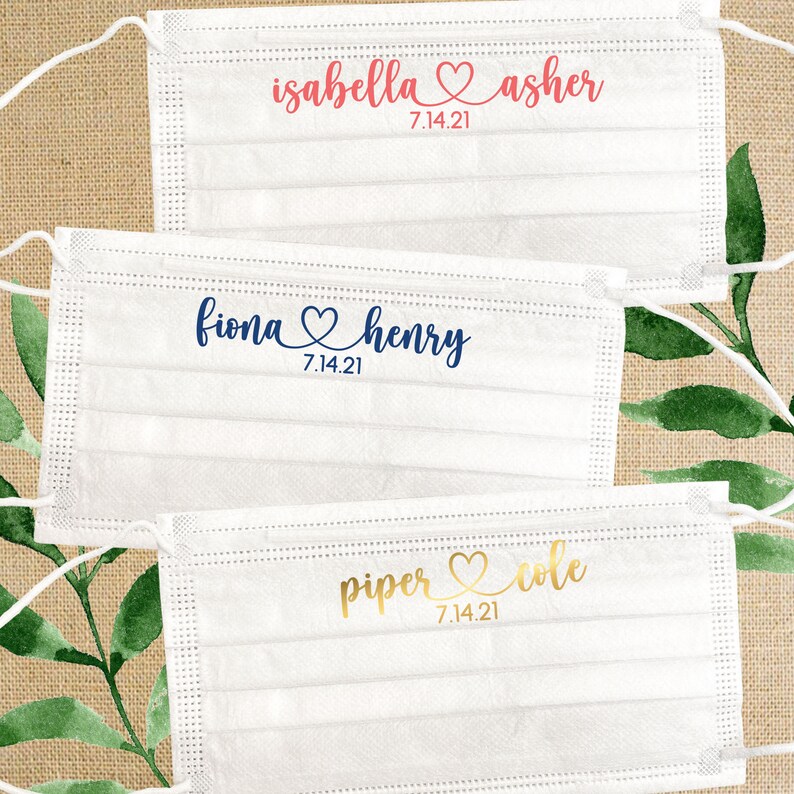 isabella ♡ asher
7.14.21
fiona ♡ henry
7.14.21
piper ♡ cole
7.14.21